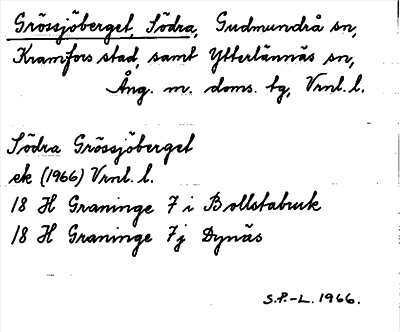 Grössjöberget, Södra, Gudmundrå sn,
Kramfors stad, samt Ytterlännäs sn,
Ång. m. doms. tg, Vrnl. l.
Södra Grössjöberget
ek (1966) Vrnl. l.
18 H Graninge 7 i Bollstabruk
18 H Graninge 7 j Dynäs
S.P.-L. 1966.